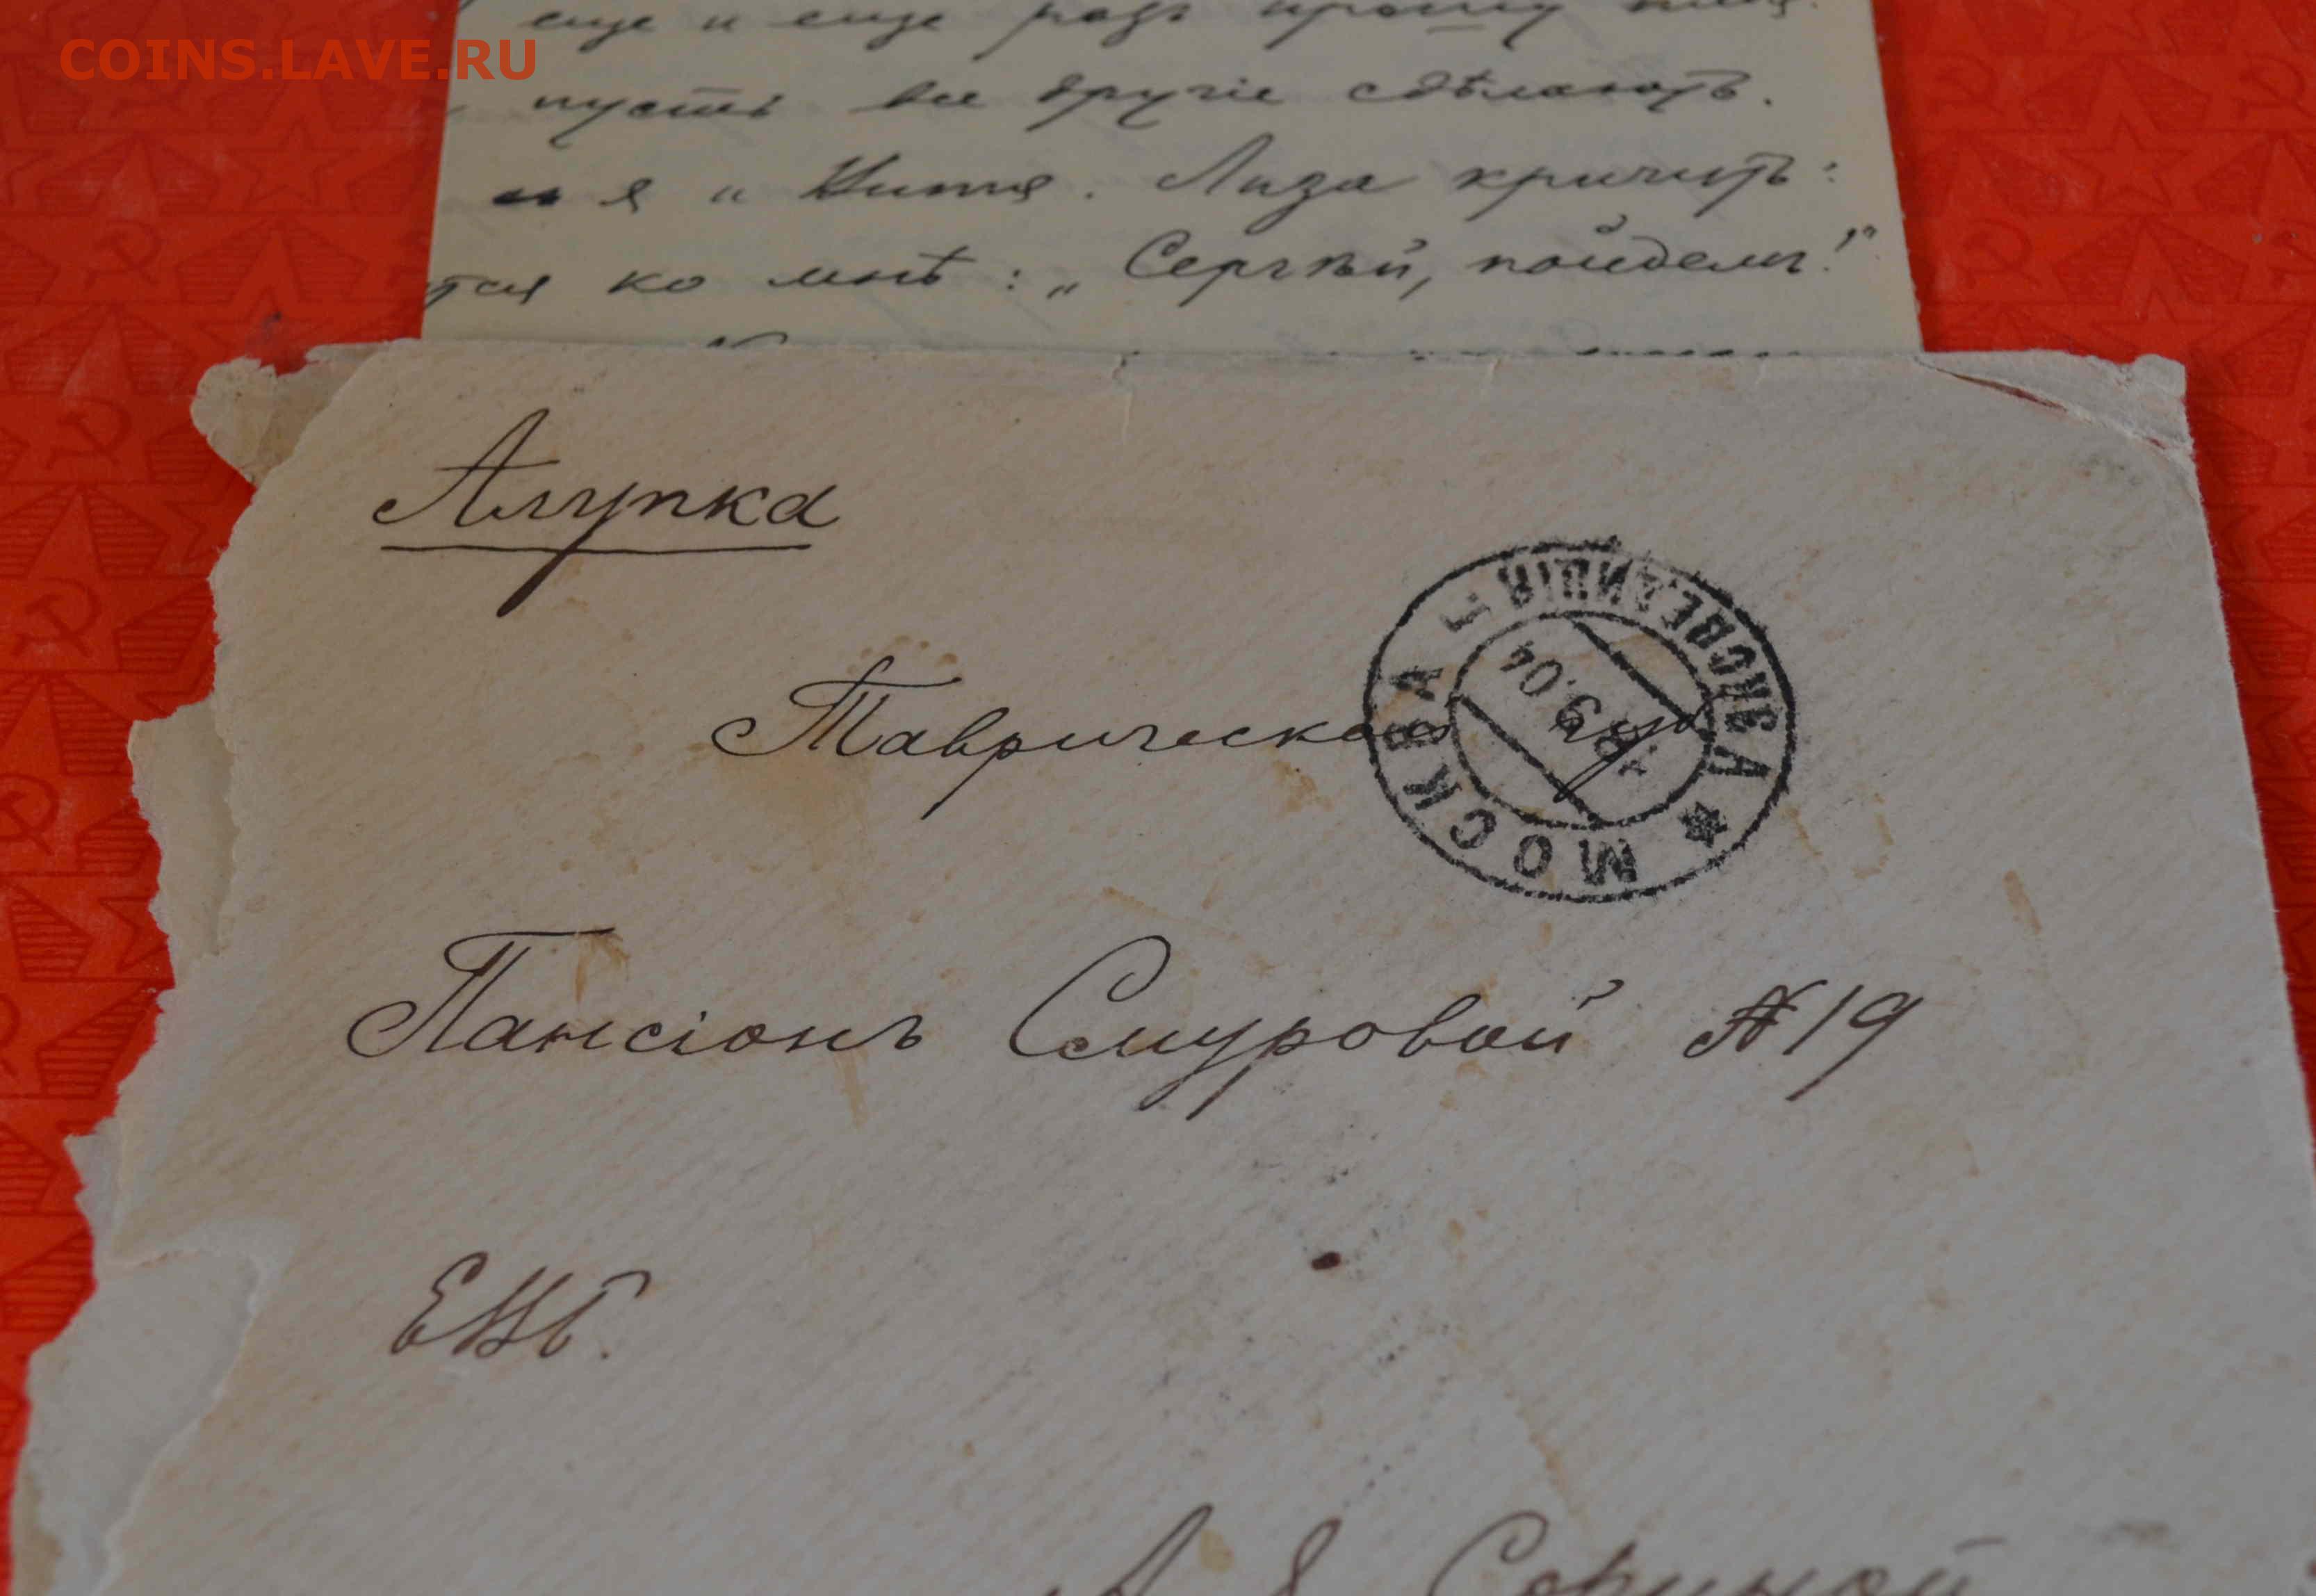 COINS.LAVE.RU
еще и еще разъ прошу
пусть все другіе сдѣлаютъ.
я и Митя. Лиза кричитъ:
тся ко мнѣ: „Сергѣй, пойдемъ!"
Алупка
Таврической губ
МОСКВА
19.04
Пансіонъ Смуровой № 19
ЕВБ.